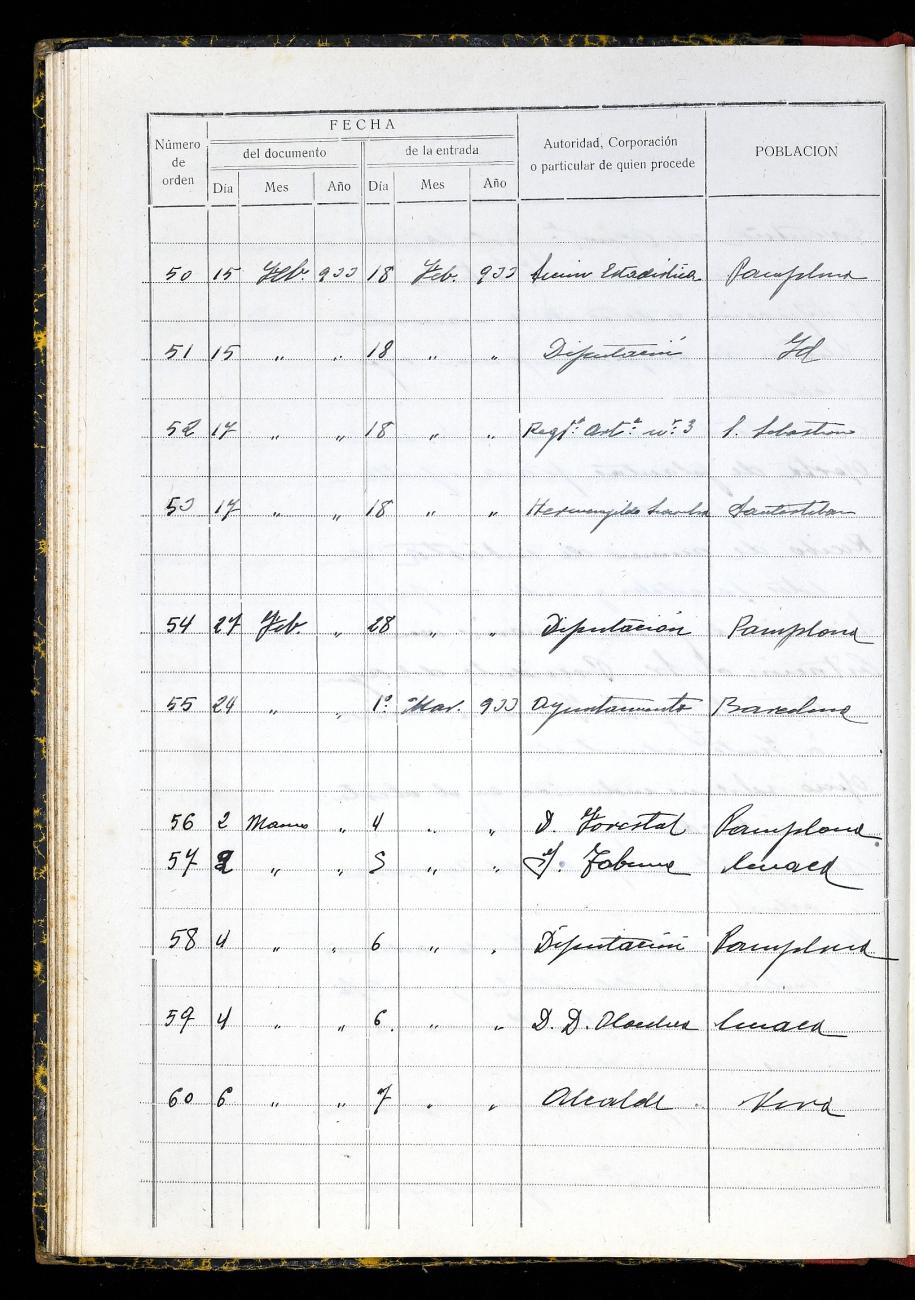 FECHA
Número de orden
del documento
de la entrada
Autoridad, Corporación o particular de quien procede
POBLACION
Día Mes Año Día Mes Año
50 15 Feb. 933 18 Feb. 933 Estadística Pamplona
51 15 " " 18 " " Diputación Id
52 17 " " 18 " " Regto. Arta. nº 3 S. Sebastian
53 17 " " 18 " " Hermenegildo Santesteban
54 27 Feb. " 28 " " Diputación Pamplona
55 24 " " 1º Mar. 933 Ayuntamiento Barcelona
56 2 Marzo " 4 " " D. Forestal Pamplona
57 2 " " 5 " "
58 4 " " 6 " " Diputación Pamplona
59 4 " " 6 " " D. D.
60 6 " " 7 " " Alcalde Vera